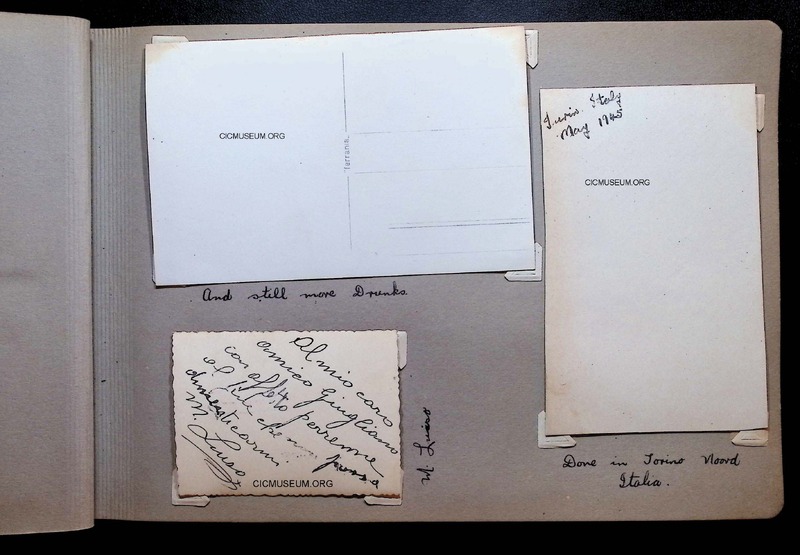 CICMUSEUM.ORG
"Ferrania"
And still more Drunks.
Turin. Italy
May 1945
CICMUSEUM.ORG
Al mio caro
amico Giugliano
con affetto perenne
che non possa
dimenticarmi.
M Luso
CICMUSEUM.ORG
M. Luiso
Done in Torino Noord
Italia.